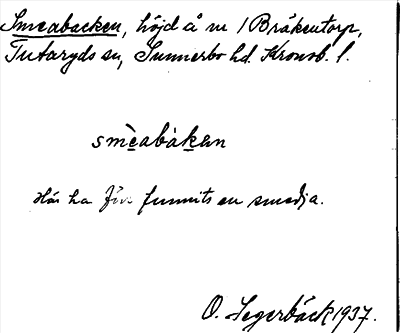 Smeabacken, höjd å nr 1 Bråkentorp,
Tutaryds sn, Sunnerbo hd. Kronob. l.
smèabàkan
Här ha förr funnits en smedja.
O. Segerbäck 1937.